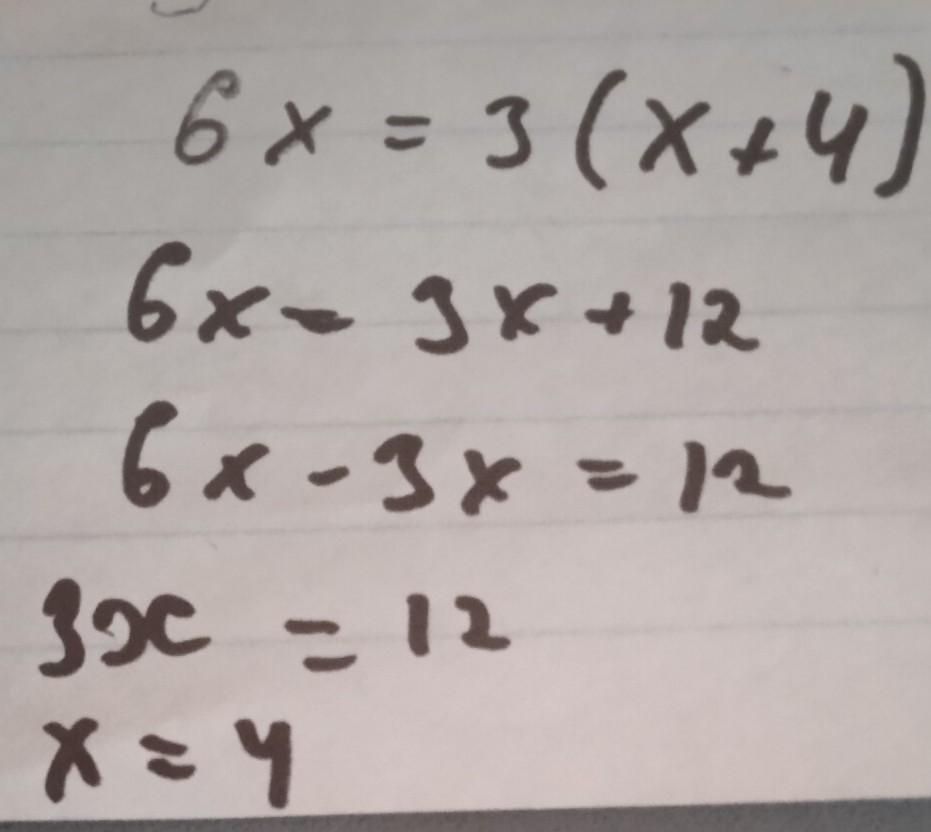 6x = 3(x+4)
6x - 3x + 12
6x - 3x = 12
3x = 12
x = 4